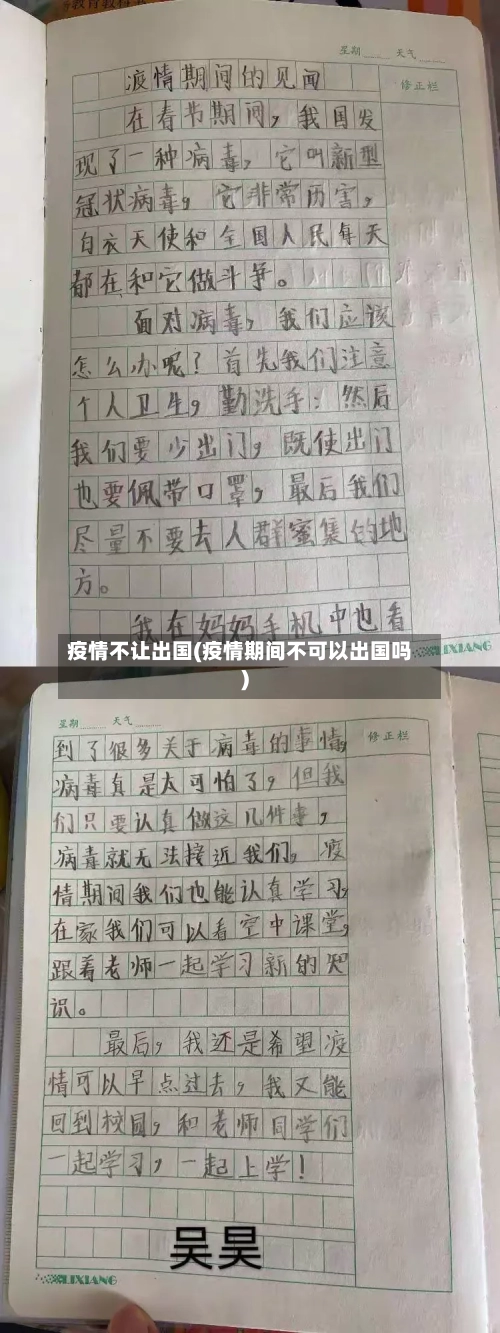 星期 天气
修正栏
疫情期间的见闻
在春节期间，我国发
现了一种病毒，它叫新型
冠状病毒，它非常厉害，
白衣天使和全国人民每天
都在和它做斗争。
面对病毒，我们应该
怎么办呢？首先我们注意
个人卫生，勤洗手：然后
我们要少出门，既使出门
也要佩带口罩，最后我们
尽量不要去人群蜜集的地
方。
我在妈妈手机中也看
LIXIANG
疫情不让出国(疫情期间不可以出国吗
)
星期 天气
修正栏
到了很多关于病毒的事情，
病毒真是太可怕了，但我
们只要认真做这几件事，
病毒就无法接近我们，疫
情期间我们也能认真学习，
在家我们可以看空中课堂，
跟着老师一起学习新的知
识。
最后，我还是希望疫
情可以早点过去，我又能
回到校园，和老师同学们
一起学习，一起上学！
吴昊
LIXIANG